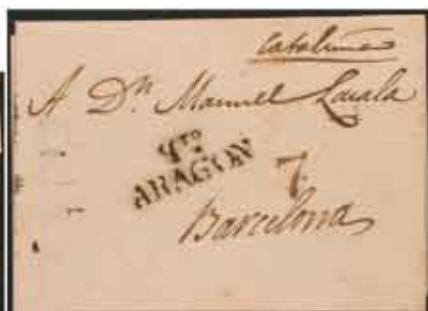 Cataluña
A Dn. Manuel Lavala
ARAGON
7
Barcelona